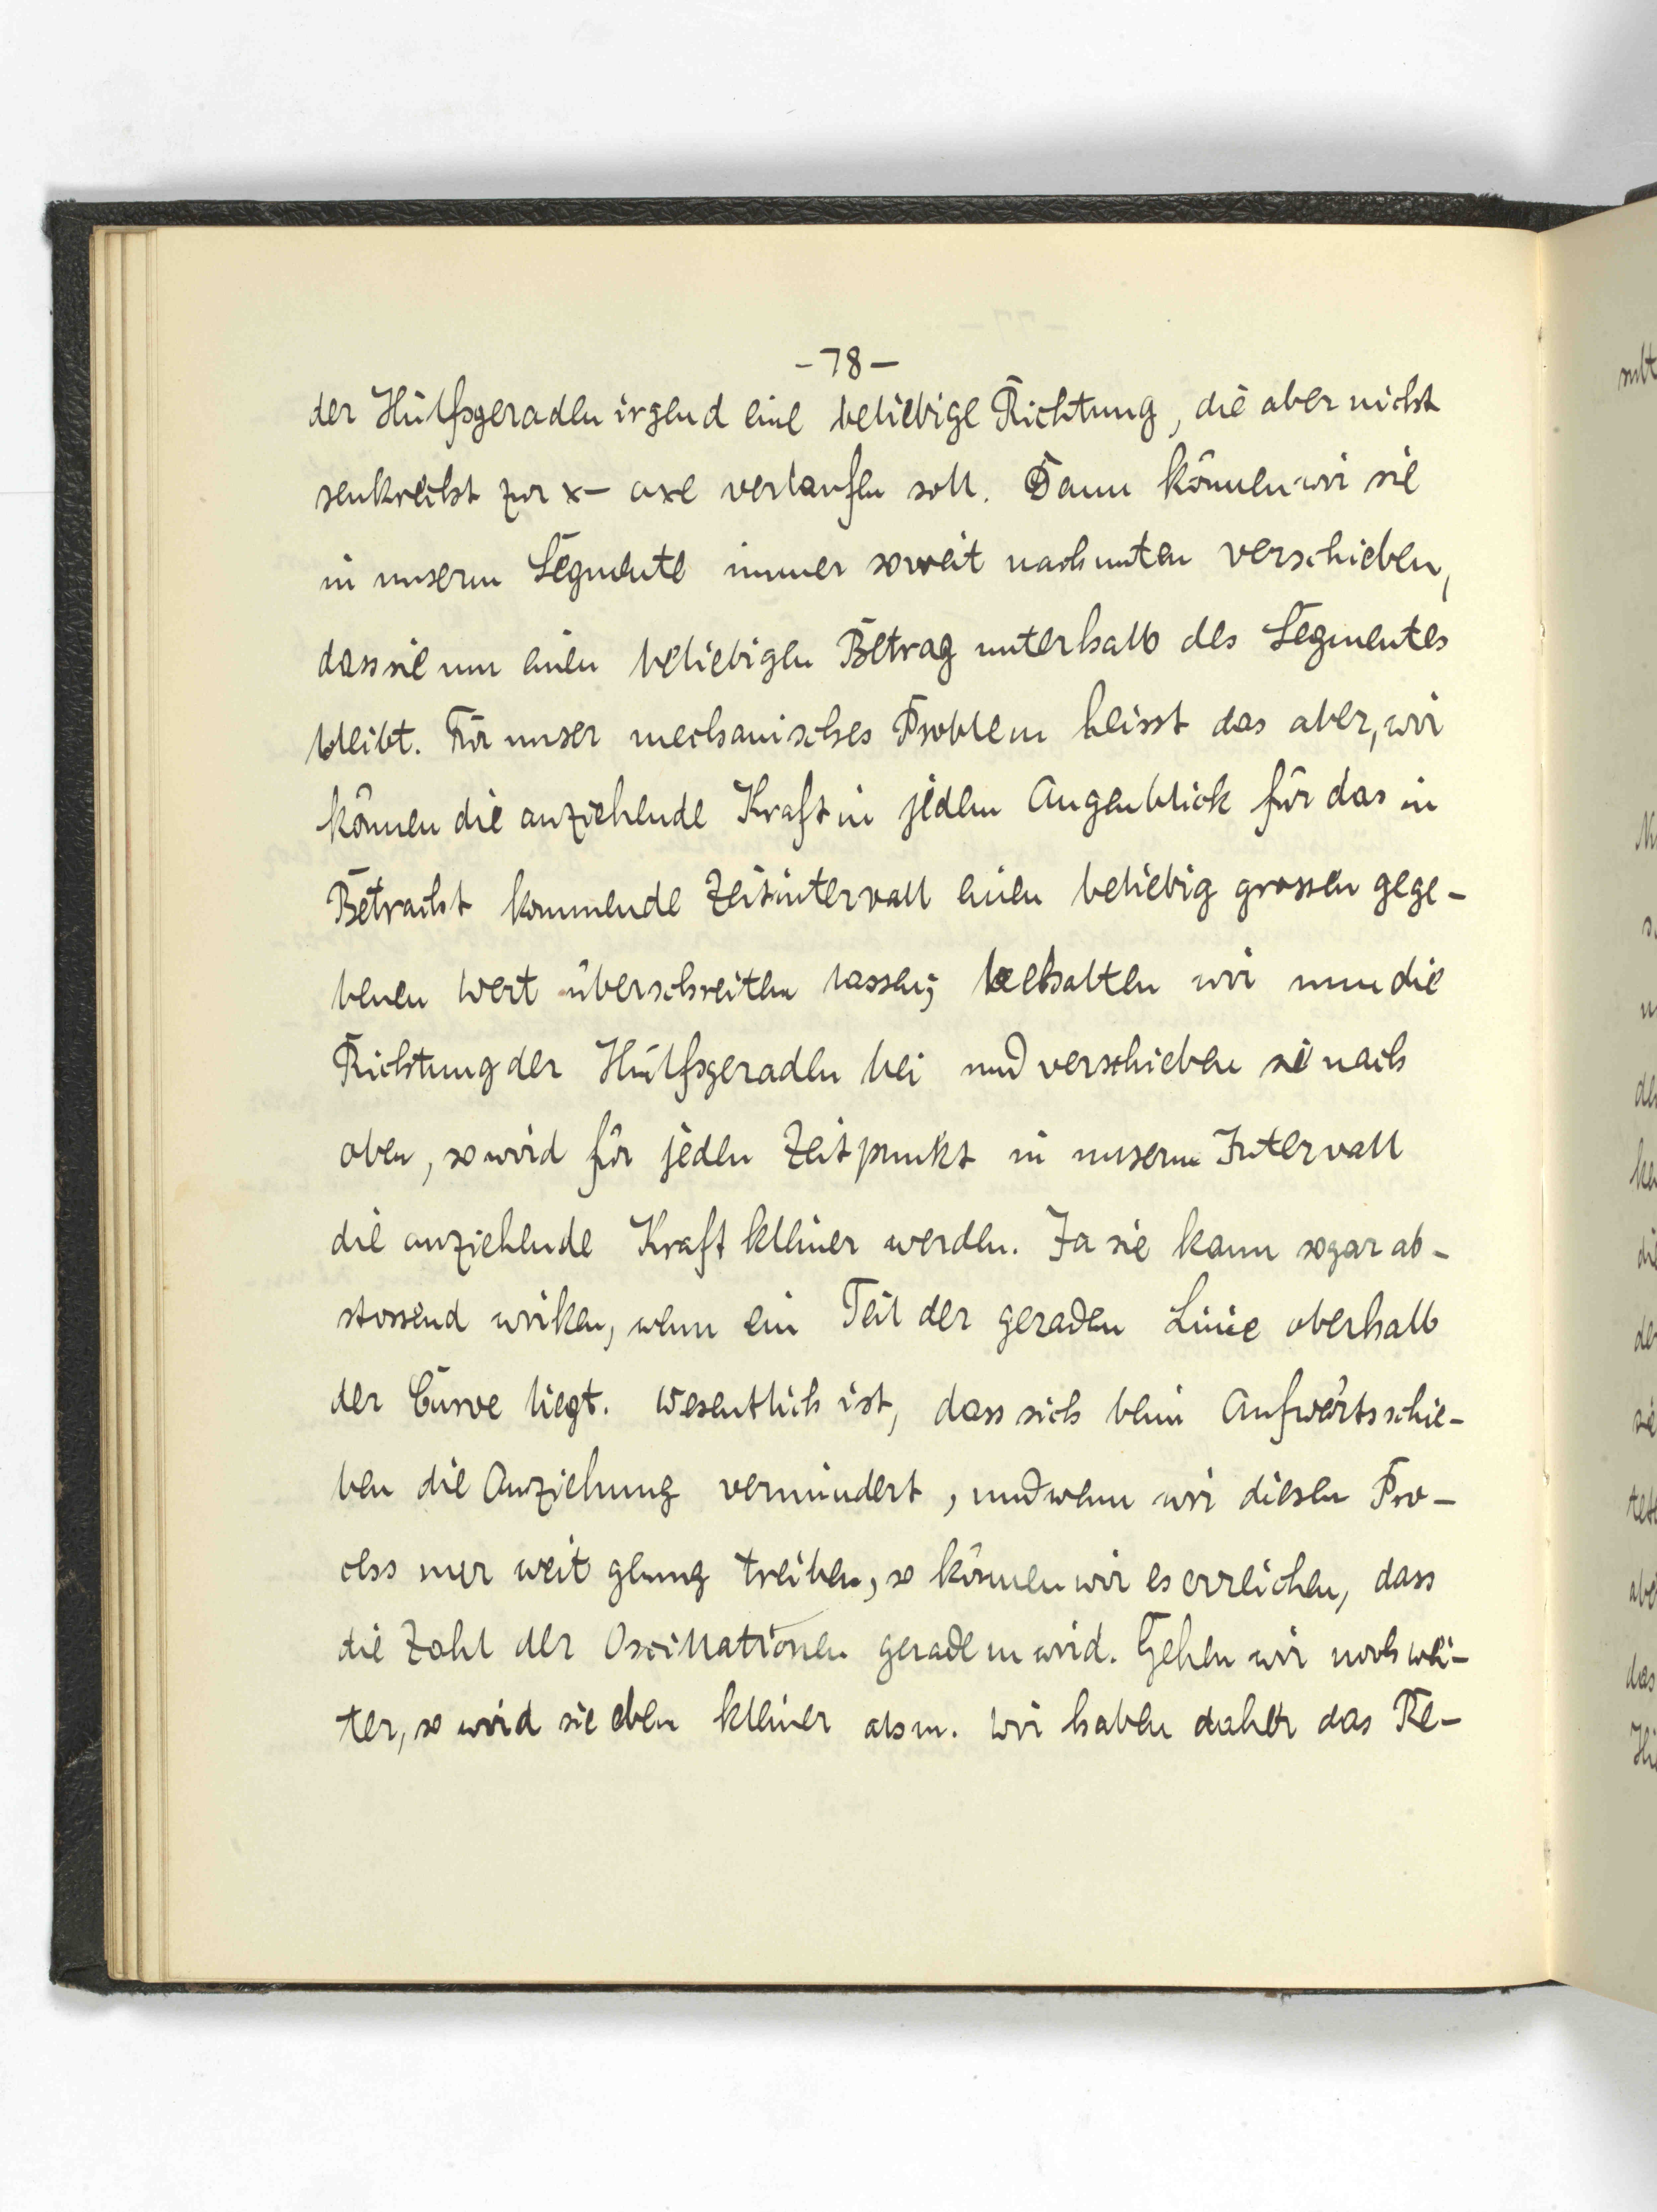 - 78 -
der Hülfsgeraden irgend eine beliebige Richtung, die aber nicht
senkrecht zur x- axe verlaufen soll. Dann können wir sie
in unserm Segmente immer soweit nach unten verschieben,
dass sie um einen beliebigen Betrag unterhalb des Segmentes
bleibt. Für unser mechanisches Problem heisst das aber, wir
können die anziehende Kraft in jedem Augenblick für das in
Betracht kommende Zeitintervall einen beliebig grossen gege-
benen Wert überschreiten lassen; behalten wir nun die
Richtung der Hülfsgeraden bei und verschieben sie nach
oben, so wird für jeden Zeitpunkt in unserm Intervall
die anziehende Kraft kleiner werden. Ja sie kann sogar ab-
stossend wirken, wenn ein Teil der geraden Linie oberhalb
der Curve liegt. Wesentlich ist, dass sich beim Aufwärtsschie-
ben die Anziehung vermindert, und wenn wir diesen Pro-
cess nur weit genug treiben, so können wir es erreichen, dass
die Zahl der Oscillationen gerade m wird. Gehen wir noch wei-
ter, so wird sie eben kleiner als m. Wir haben daher das Re-